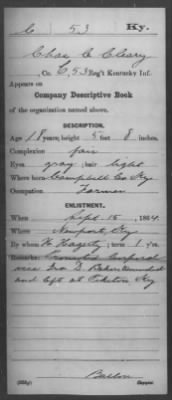 C 53 Ky.
Chas C Cleary
, Co. C, 53 Reg't Kentucky Inf.
Appears on
Company Descriptive Book
of the organization named above.
DESCRIPTION.
Age 18 years; height 5 feet 8 inches.
Complexion fair
Eyes gray; hair light
Where born Campbell Co Ky
Occupation Farmer
ENLISTMENT.
When Sept. 15, 1864.
Where Newport, Ky
By whom H. Hagerty; term 1 y'rs.
Remarks: Promoted Corporal
vice Ira D. Baker wounded
and left at Piketon Ky
Ballou
Copyist.